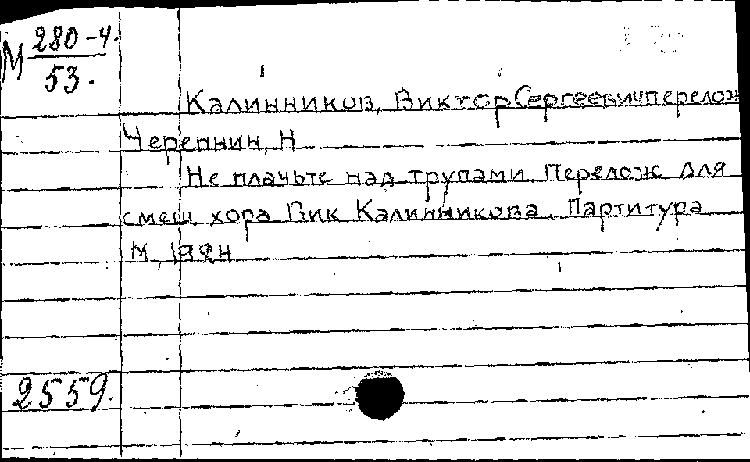 М 280-4.
53.
Калинников, Виктор Сергеевич перелож
Черепнин, Н
Не плачьте над трупами. Перелож для
смеш хора Вик Калинникова. Партитура
М, 1924
2559.